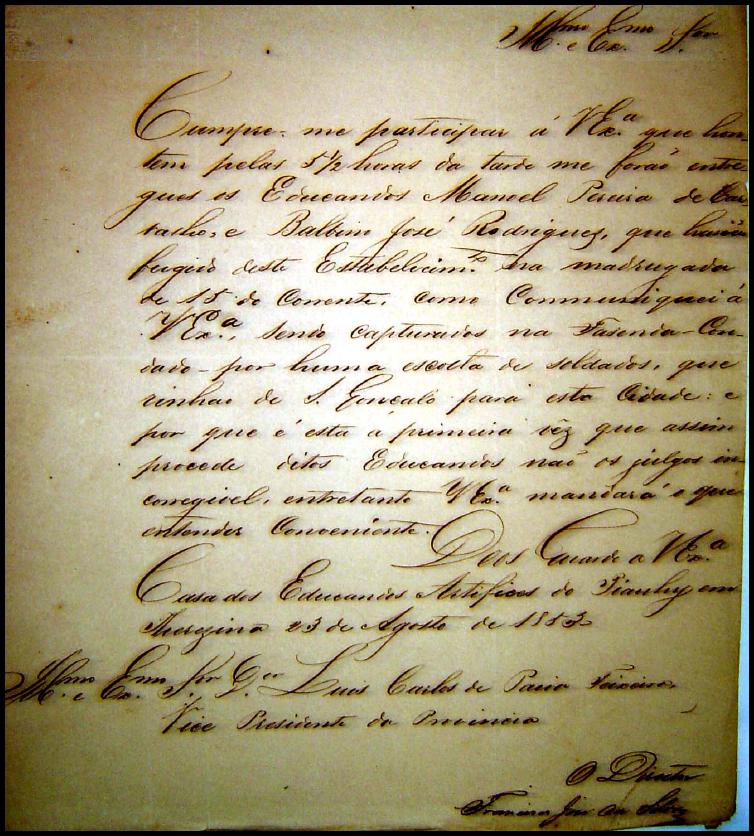 Illmo. e Exmo. Snr.
Cumpre-me participar á V.Exª. que hon-
tem pelas 5 1/2 horas da tarde me forão entre
gues os Educandos Manoel Pereira de
e Balbino José Rodrigues, que havião
fugido deste Estabelecimto. na madrugada
de 15 do Corrente, como Communiquei á
V.Exª., sendo capturados na Fasenda-Con-
dado-por huma escolta de soldados, que
vinhão de S. Gonçalo para esta Cidade: e
por que é esta a primeira vêz que assim
procede ditos Educandos não os julgo in
corregivel, entretanto V.Exª. mandará o que
entender Conveniente.
Deos Guarde a V.Exª.
Casa dos Educandos Artifices do Piauhy em
Therezina 23 de Agosto de 1853
Illmo. e Exmo. Snr. Dor. Luis Carlos de Paiva Teixeira,
Vice Presidente da Provincia
O Director
Francisco José da Silva